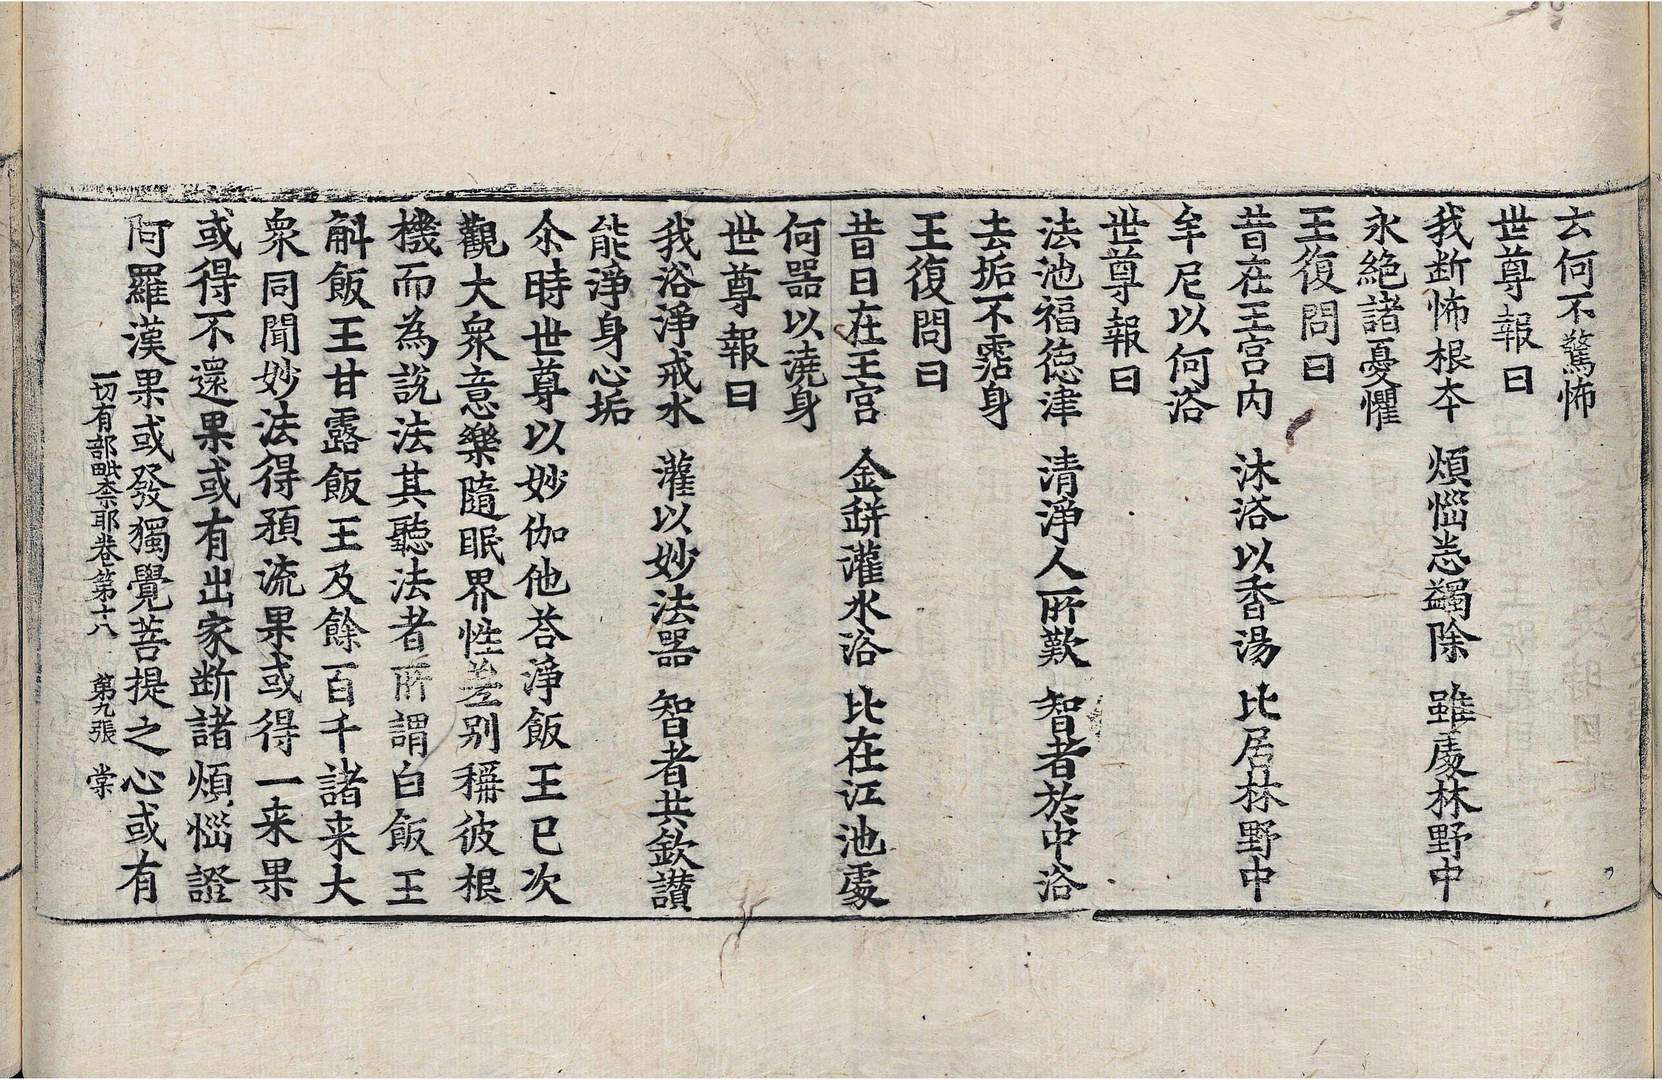 云何不驚怖
世尊報曰
我断怖根夲　煩惱悉蠲除　雖處林野中
永絶諸憂懼
王復問曰
昔在王宫内　沐浴以香湯　比居林野中
牟尼以何浴
世尊報曰
法池福德津　清淨人所歎　智者於中浴
去垢不霑身
王復問曰
昔日在王宫　金缾灌水浴　比在江池處
何器以澆身
世尊報曰
我浴淨戒水　灌以妙法器　智者共欽讃
能淨身心垢
尒時世尊以妙伽他荅淨飯王已次
觀大衆意樂隨眠界性差别稱彼根
機而為說法其聽法者所謂白飯王
斛飯王甘露飯王及餘百千諸来大
衆同聞妙法得預流果或得一来果
或得不還果或有出家断諸煩惱證
阿羅漢果或發獨覺菩提之心或有
一切有部毗柰耶卷第十八　第九張　棠